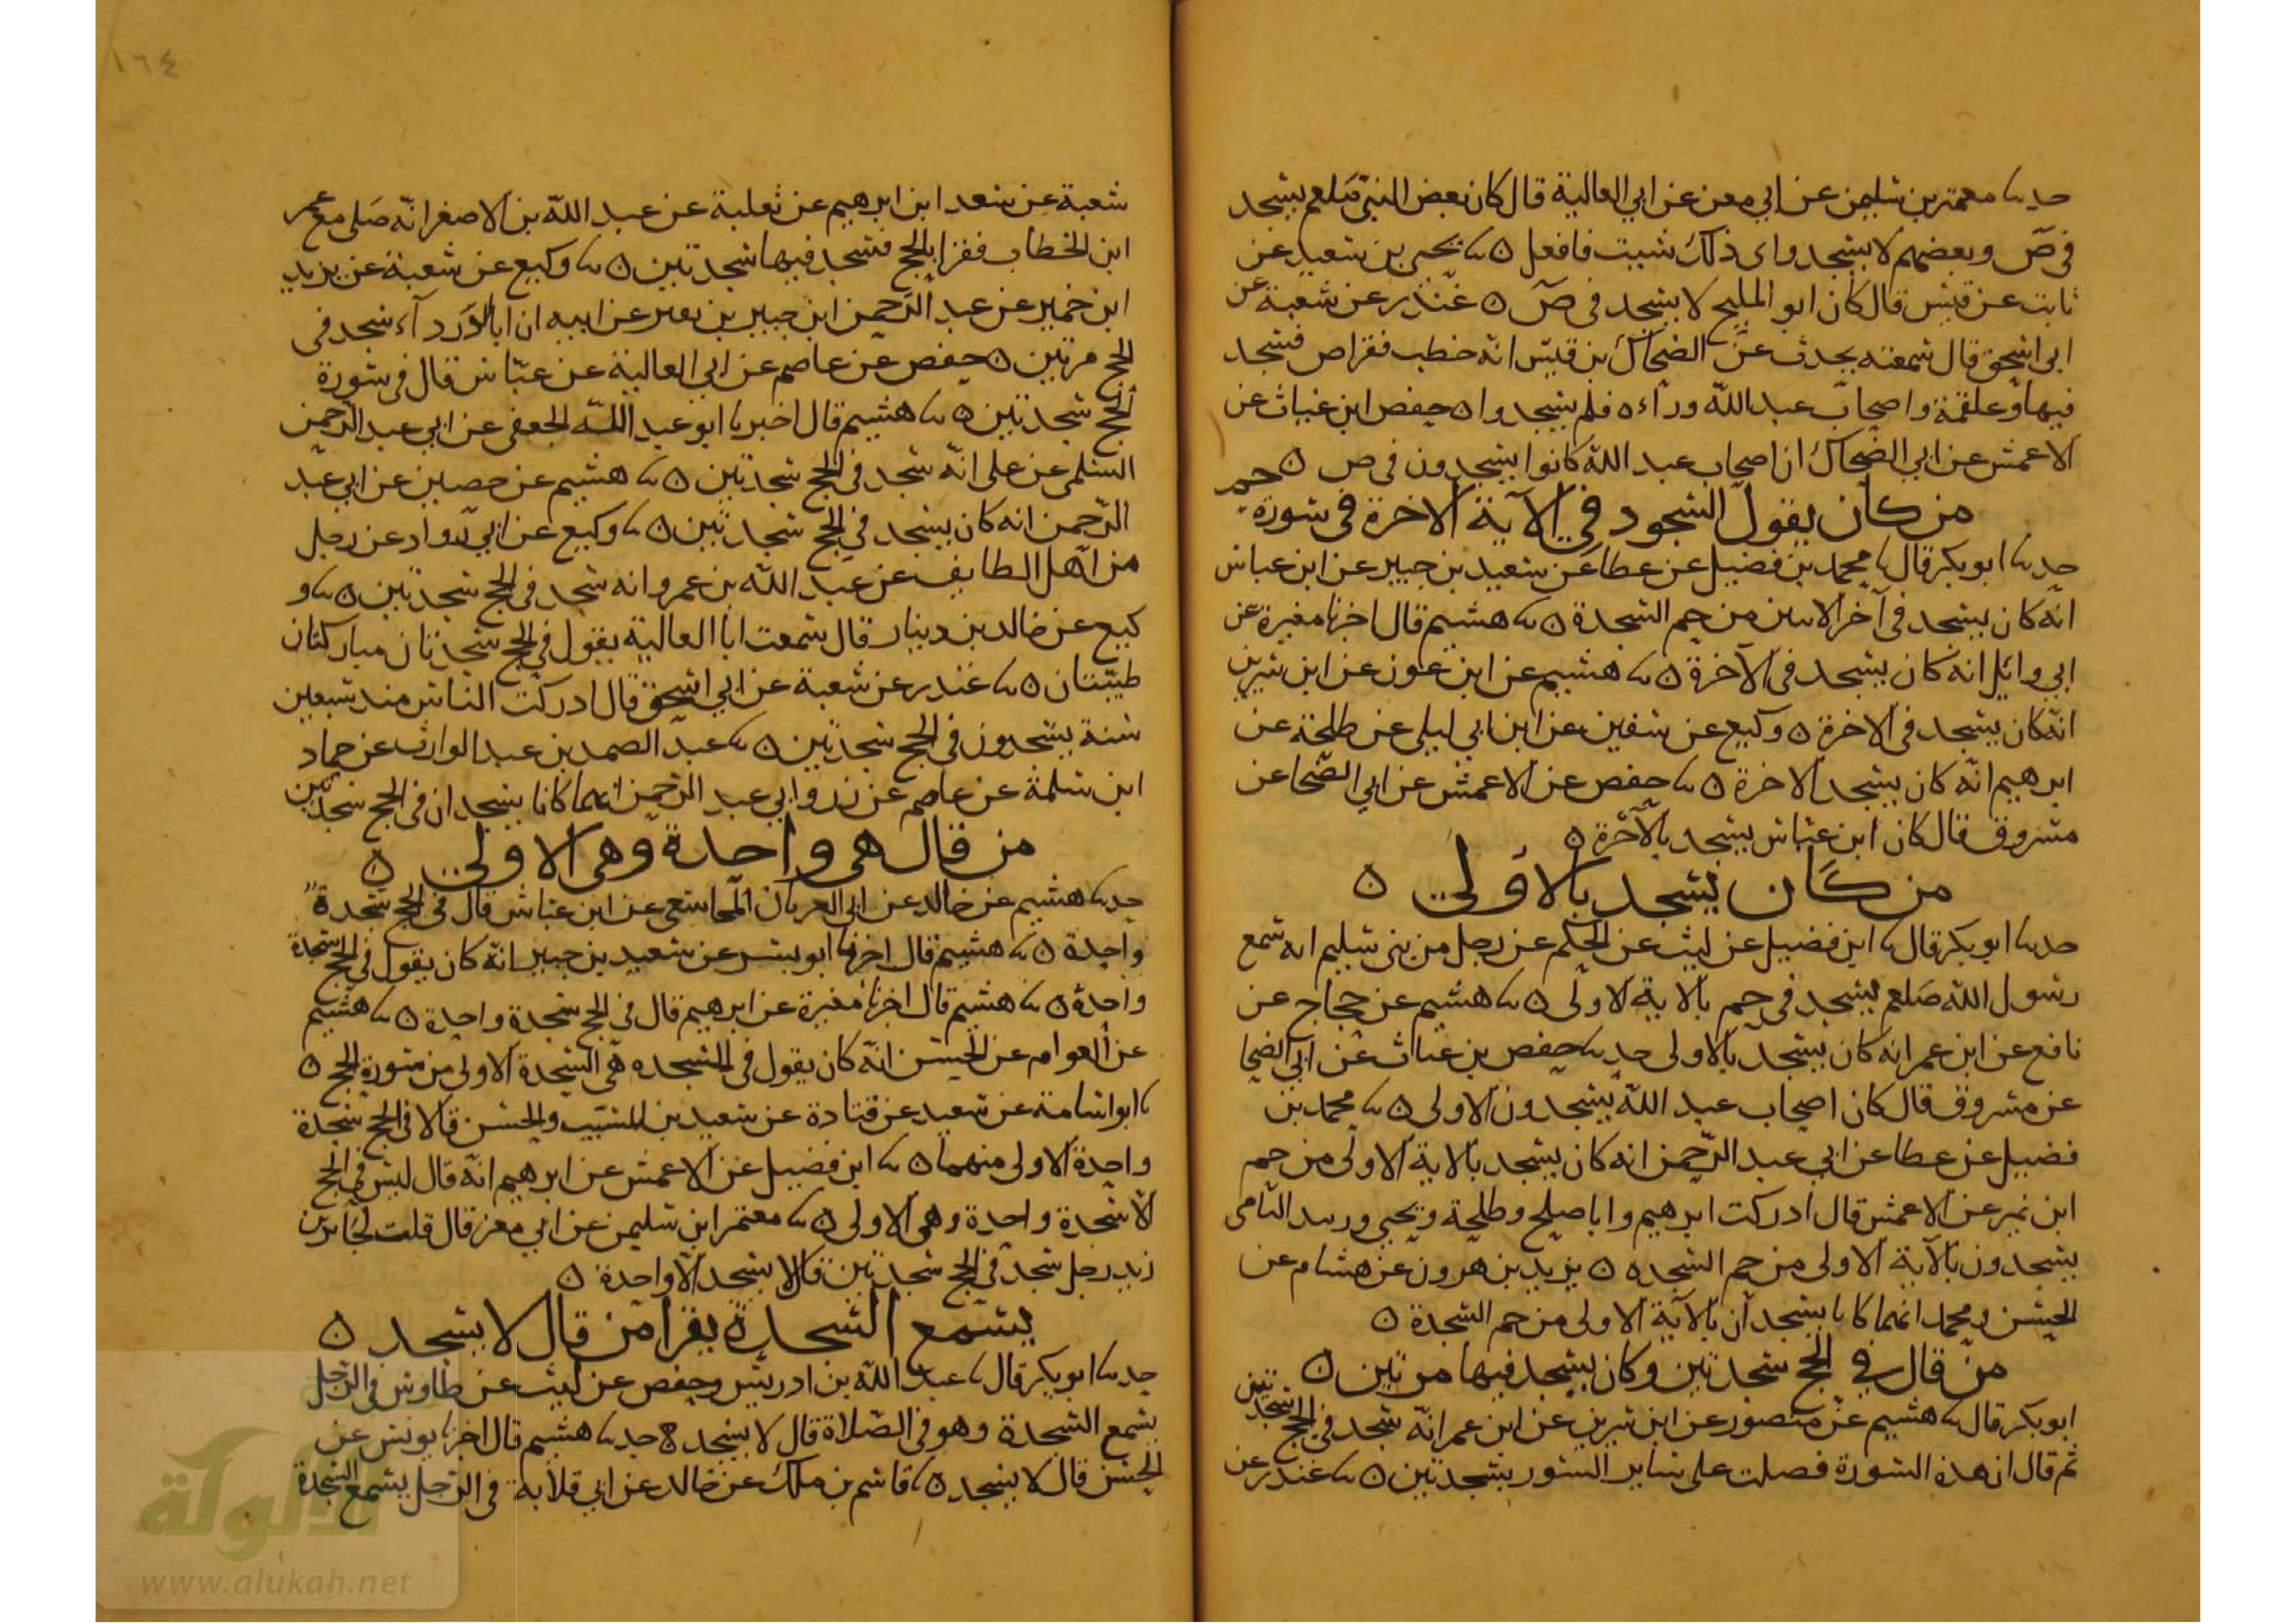 حدثنا معتمر بن سليمن عن ابي معن عن ابي العالية قال كان بعض النبي صلعم يسجد
في ص وبعضهم لا يسجد واى ذلك شيت فافعل ٥ ثنا يحيى بن سعيد عن
ثابت عن قيس قال كان ابو المليح لا يسجد في ص ٥ غندر عن شعبة عن
ابي اسحق قال سمعته يحدث عن الضحاك بن قيس انه خطب فقرا ص فسجد
فيها وعلقمة واصحاب عبد الله وراءه فلم يسجدوا ٥ حفص ابن غياث عن
الاعمش عن ابي الضحاك ان اصحاب عبد الله كانوا يسجدون في ص ٥
من كان يقول السجود في الآية الاخرة في سورة حم
حدثنا ابو بكر قال ثنا محمد بن فضيل عن عطا عن سعيد بن جبير عن ابن عباس
انه كان يسجد في آخر الايتين من حم السجدة ٥ ثنا هشيم قال اخبرنا مغيرة عن
ابي وايل انه كان يسجد في الآخرة ٥ ثنا هشيم عن ابن عون عن ابن سيرين
انه كان يسجد في الاخرة ٥ وكيع عن سفين عن ابن ابي ليلى عن طلحة عن
ابرهيم انه كان يسجد بالاخرة ٥ ثنا حفص عن الاعمش عن ابي الضحا عن
مسروق قال كان ابن عباس يسجد بالآخرة ٥
من كان يسجد بالاولى ٥
حدثنا ابو بكر قال ثنا ابن فضيل عن ليث عن الحكم عن رجل من بني سليم انه سمع
رسول الله صلعم يسجد في حم بالاية الاولى ٥ ثنا هشيم عن حجاج عن
نافع عن ابن عمر انه كان يسجد بالاولى حدثنا حفص بن غياث عن ابي الضحا
عن مسروق قال كان اصحاب عبد الله يسجدون الاولى ٥ ثنا محمد بن
فضيل عن عطا عن ابي عبد الرحمن انه كان يسجد بالاية الاولى من حم
ابن نمير عن الاعمش قال ادركت ابرهيم وابا صلح وطلحة ويحيى وزبيد اليامي
يسجدون بالآية الاولى من حم السجده ٥ يزيد بن هرون عن هشام عن
الحسن ومحمد انهما كانا يسجدان بالآية الاولى من حم السجدة ٥
من قال في الحج سجدتين وكان يسجد فيها مرتين ٥
ابو بكر قال ثنا هشيم عن منصور عن ابن سيرين عن ابن عمر انه سجد في الحج سجدتين
ثم قال ان هذه السورة فصلت على ساير السور بسجدتين ٥ ثنا غندر عن
شعبة عن سعد ابن ابرهيم عن ثعلبة عن عبد الله بن الاصغر انه صلى مع عمر
ابن الخطاب فقرا بالحج فسجد فيها سجدتين ٥ ثنا وكيع عن شعبة عن يزيد
ابن خمير عن عبد الرحمن ابن جبير بن نفير عن ابيه ان ابا الدردآء سجد في
الحج مرتين ٥ حفص عن عاصم عن ابي العالية عن عباس قال في سورة
الحج سجدتين ٥ ثنا هشيم قال اخبرنا ابو عبد الله الجعفي عن ابي عبد الرحمن
السلمى عن على انه سجد في الحج سجدتين ٥ ثنا هشيم عن حصين عن ابي عبد
الرحمن انه كان يسجد في الحج سجدتين ٥ ثنا وكيع عن ابي رواد عن رجل
من اهل الطايف عن عبد الله بن عمرو انه سجد في الحج سجدتين ٥ ثنا و
كيع عن خالد بن دينار قال سمعت ابا العالية يقول في الحج سجدتان مباركتان
طيبتان ٥ ثنا غندر عن شعبة عن ابي اسحق قال ادركت الناس منذ سبعين
سنة يسجدون في الحج سجدتين ٥ ثنا عبد الصمد بن عبد الوارث عن حماد
ابن سلمة عن عاصم عن زر وابي عبد الرحمن انهما كانا يسجدان في الحج سجدتين
من قال هى واحدة وهى الاولى ٥
حدثنا هشيم عن خالد عن ابي العريان المجاشعى عن ابن عباس قال في الحج سجدة
واحدة ٥ ثنا هشيم قال اخبرنا ابو بشر عن سعيد بن جبير انه كان يقول في الحج سجدة
واحدة ٥ ثنا هشيم قال اخبرنا مغيرة عن ابرهيم قال في الحج سجدة واحدة ٥ ثنا هشيم
عن العوام عن الحسن انه كان يقول في السجده هى السجدة الاولى من سورة الحج ٥
ثنا ابو اسامة عن سعيد عن قتادة عن سعيد بن المسيب والحسن قالا في الحج سجدة
واحدة الاولى منهما ٥ ثنا ابن فضيل عن الاعمش عن ابرهيم انه قال ليس في الحج
الا سجدة واحدة وهى الاولى ٥ ثنا معتمر ابن سليمن عن ابي معن قال قلت لجابر بن
زيد رجل سجد في الحج سجدتين قال لا يسجد الا واحدة ٥
يسمع السجدة يقرا من قال لا يسجد ٥
حدثنا ابو بكر قال ثنا عبد الله بن ادريس وحفص عن ليث عن طاوس في الرجل
يسمع السجدة وهو في الصلاة قال لا يسجد ٥ حدثنا هشيم قال اخبرنا يونس عن
الحسن قال لا يسجد ٥ ثنا قاسم بن ملك عن خالد عن ابي قلابة في الرجل يسمع السجدة
١٦٤
الألوكة
www.alukah.net